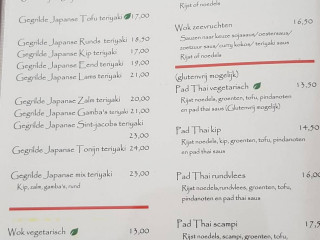 Gegrilde Japanse Tofu teriyaki 17,00
Gegrilde Japanse Runds teriyaki 18,50
Gegrilde Japanse Kip teriyaki 17,00
Gegrilde Japanse Eend teriyaki 19,00
Gegrilde Japanse Lams teriyaki 21,00
Gegrilde Japanse Zalm teriyaki 20,00
Gegrilde Japanse Gamba's teriyaki 21,00
Gegrilde Japanse Sint-jacobs teriyaki
23,00
Gegrilde Japanse Tonijn teriyaki 24,00
Gegrilde Japanse mix teriyaki 23,00
Kip, zalm, gamba's, rund
Wok vegetarisch 13,00
Rijst of noedels
Wok zeevruchten 16,50
Sausen naar keuze sojasaus/oestersaus/
zoetzuur saus/curry kokos/ teriyaki saus
Rijst of noedels
(glutenvrij mogelijk)
Pad Thai vegetarisch 13,50
Rijst noedels, groenten, tofu, pindanoten
en pad thai saus (Glutenvrij mogelijk)
Pad Thai kip 14,50
Rijst noedels, kip, groenten, tofu, pindanoten
en pad thai saus
Pad Thai rundvlees 16,00
Rijst noedels, rundvlees, groenten, tofu,
pindanoten en pad thai saus
Pad Thai scampi 17,5
Rijst noedels, scampi, groenten, tofu,